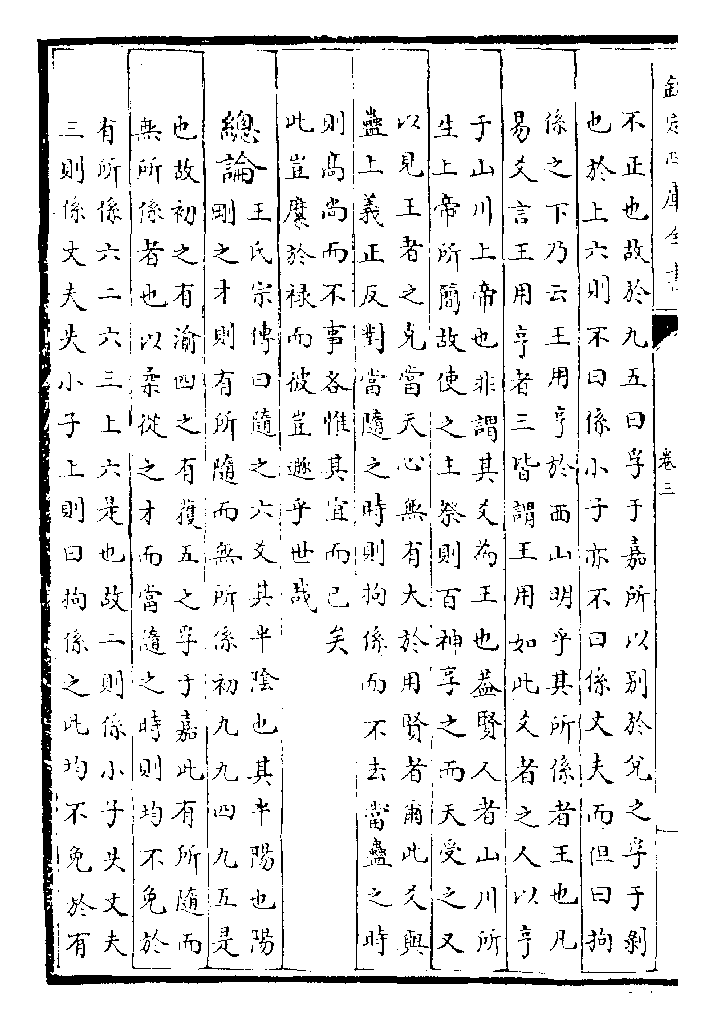 欽定四庫全書
卷三
不正也故於九五曰孚于嘉所以别於兌之孚于剝
也於上六則不曰係小子亦不曰係丈夫而但曰拘
係之下乃云王用亨於西山明乎其所係者王也凡
易爻言王用亨者三皆謂王用如此爻者之人以亨
于山川上帝也非謂其爻為王也葢賢人者山川所
生上帝所簡故使之主祭則百神享之而天受之又
以見王者之克當天心無有大於用賢者爾此爻與
蠱上義正反對當隨之時則拘係而不去當蠱之時
則高尚而不事各惟其宜而已矣
此豈縻於禄而彼豈遯乎世哉
總論王氏宗傳曰隨之六爻其半陰也其半陽也陽
剛之才則有所隨而無所係初九九四九五是
也故初之有渝四之有獲五之孚于嘉此有所隨而
無所係者也以柔從之才而當隨之時則均不免於
有所係六二六三上六是也故二則係小子失丈夫
三則係丈夫失小子上則曰拘係之此均不免於有